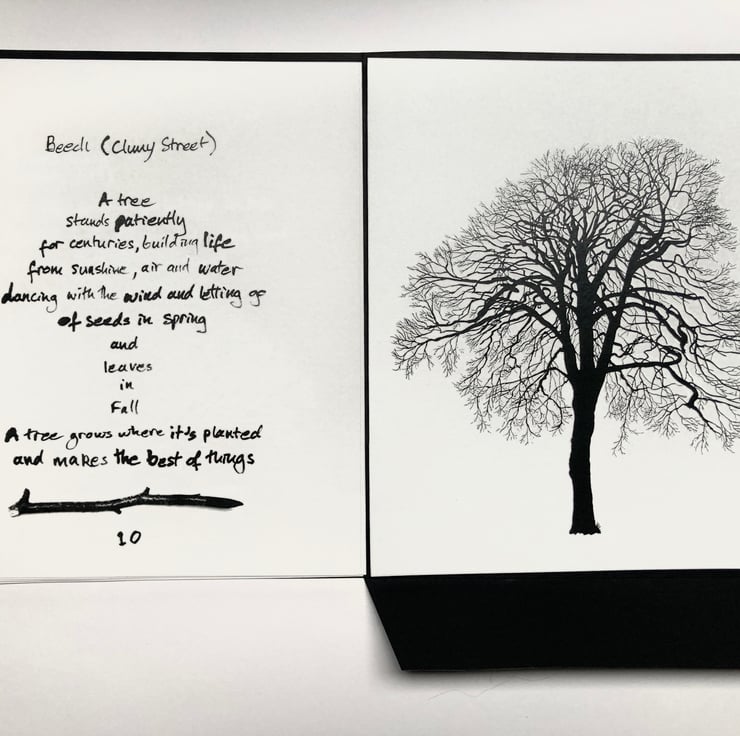 Beech (Cluny Street)
A tree
stands patiently
for centuries, building life
from sunshine, air and water
dancing with the wind and letting go
of seeds in spring
and
leaves
in
Fall
A tree grows where it's planted
and makes the best of things
10